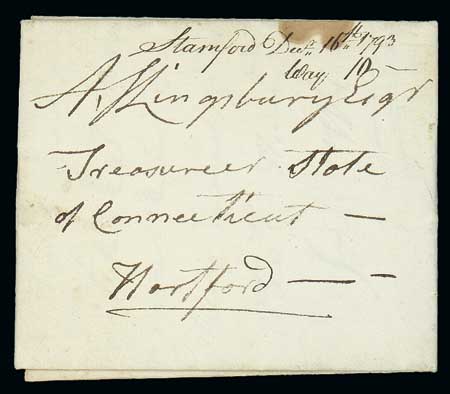 Stamford Decr. 16th 1793
Way, 10
A, Kingsbury Esqr
Treasureer State
of Connecticut —
Hartford — —